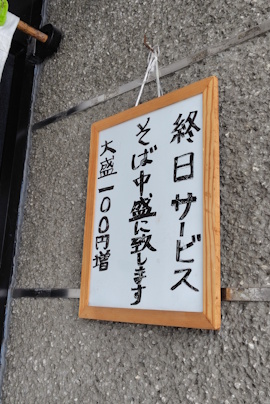 終日サービス
そば中盛に致します
大盛一〇〇円増